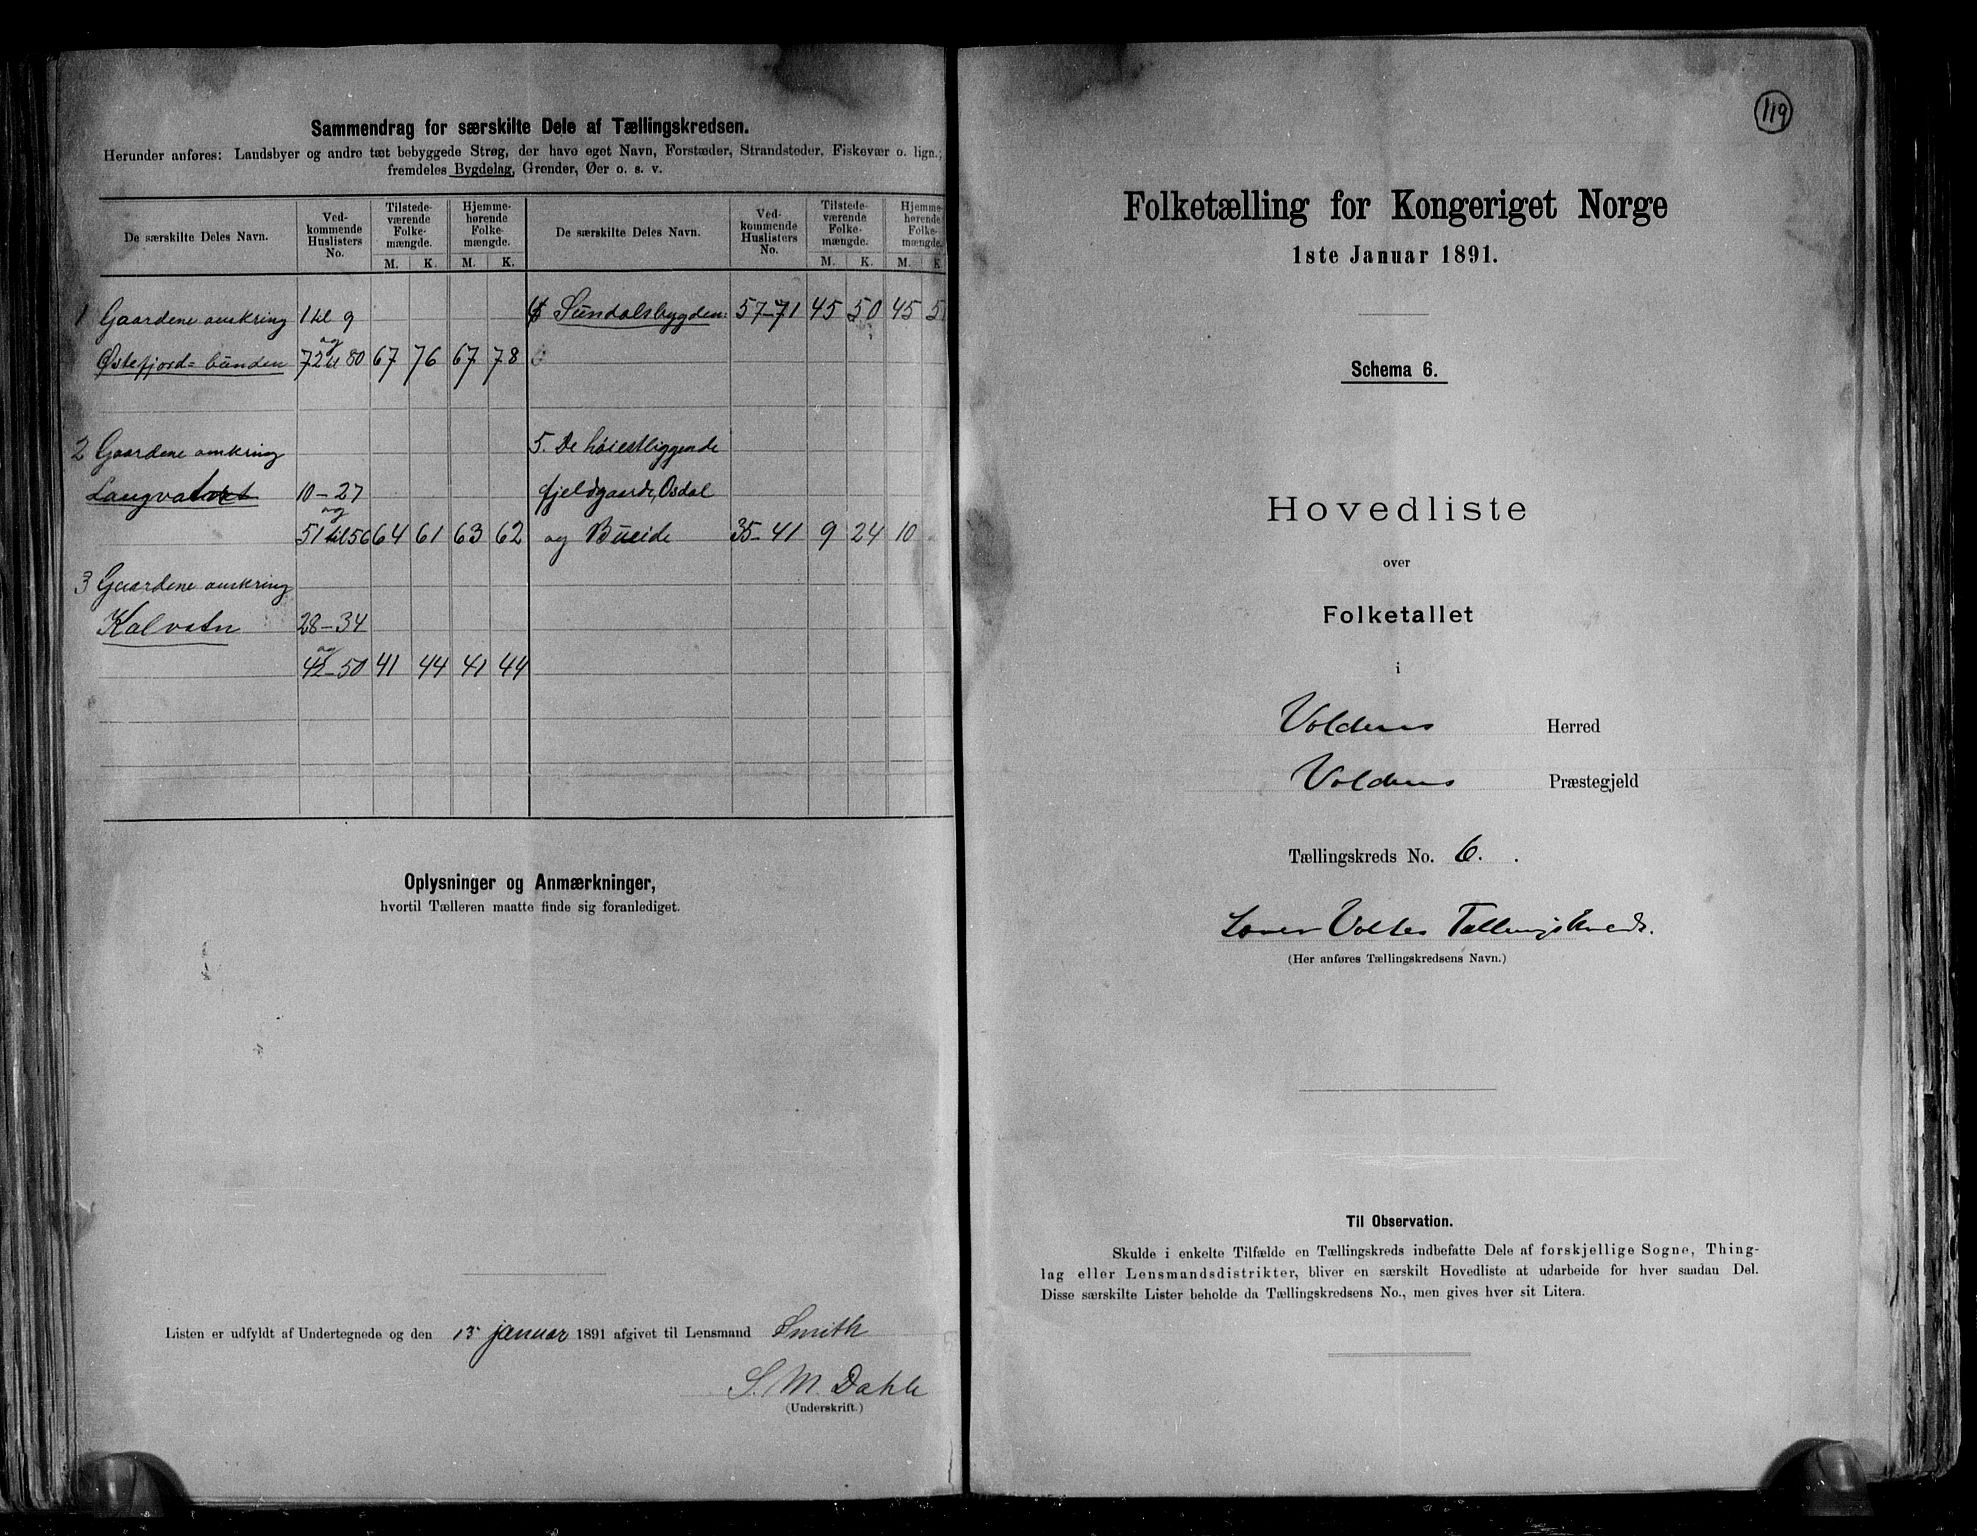 Sammendrag for særskilte Dele af Tællingskredsen.
Herunder anføres: Landsbyer og andre tæt bebyggede Strøg, der have eget Navn, Forstæder, Strandsteder, Fiskevær o. lign.;
fremdeles Bygdelag, Grender, Øer o. s. v.
De særskilte Deles Navn.
Ved-
kommende
Huslisters
No.
Tilstede-
værende
Folke-
mængde.
Hjemme-
hørende
Folke-
mængde.
De særskilte Deles Navn.
Ved-
kommende
Huslisters
No.
Tilstede-
værende
Folke-
mængde.
Hjemme-
hørende
Folke-
mængde.
M. K. M. K. M. K. M. K
1 Gaardene omkring 1 til 9
og
Østefjord=bunden 72 til 80 67 76 67 78
2 Gaardene omkring
10-27
og
51 til 56 64 61 63 62
3 Gaardene omkring
Kalvatn 28-34
og
42-50 41 44 41 44
4 Sundalsbygden: 57-71 45 50 45 5
5. De høiestliggende
fjeldgaarde, Osdal
og Bueide 35-41 9 24 10
Oplysninger og Anmærkninger,
hvortil Tælleren maatte finde sig foranlediget.
Listen er udfyldt af Undertegnede og den 15 januar 1891 afgivet til Lensmand Smith
S. M. Dahle
(Underskrift.)
119
Folketælling for Kongeriget Norge
1ste Januar 1891.
Schema 6.
Hovedliste
over
Folketallet
i
Voldens Herred
Voldens Præstegjeld
Tællingskreds No. 6.
Tællingskreds.
(Her anføres Tællingskredsens Navn.)
Til Observation.
Skulde i enkelte Tilfælde en Tællingskreds indbefatte Dele af forskjellige Sogne, Thing-
lag eller Lensmandsdistrikter, bliver en særskilt Hovedliste at udarbeide for hver saadan Del.
Disse særskilte Lister beholde da Tællingskredsens No., men gives hver sit Litera.